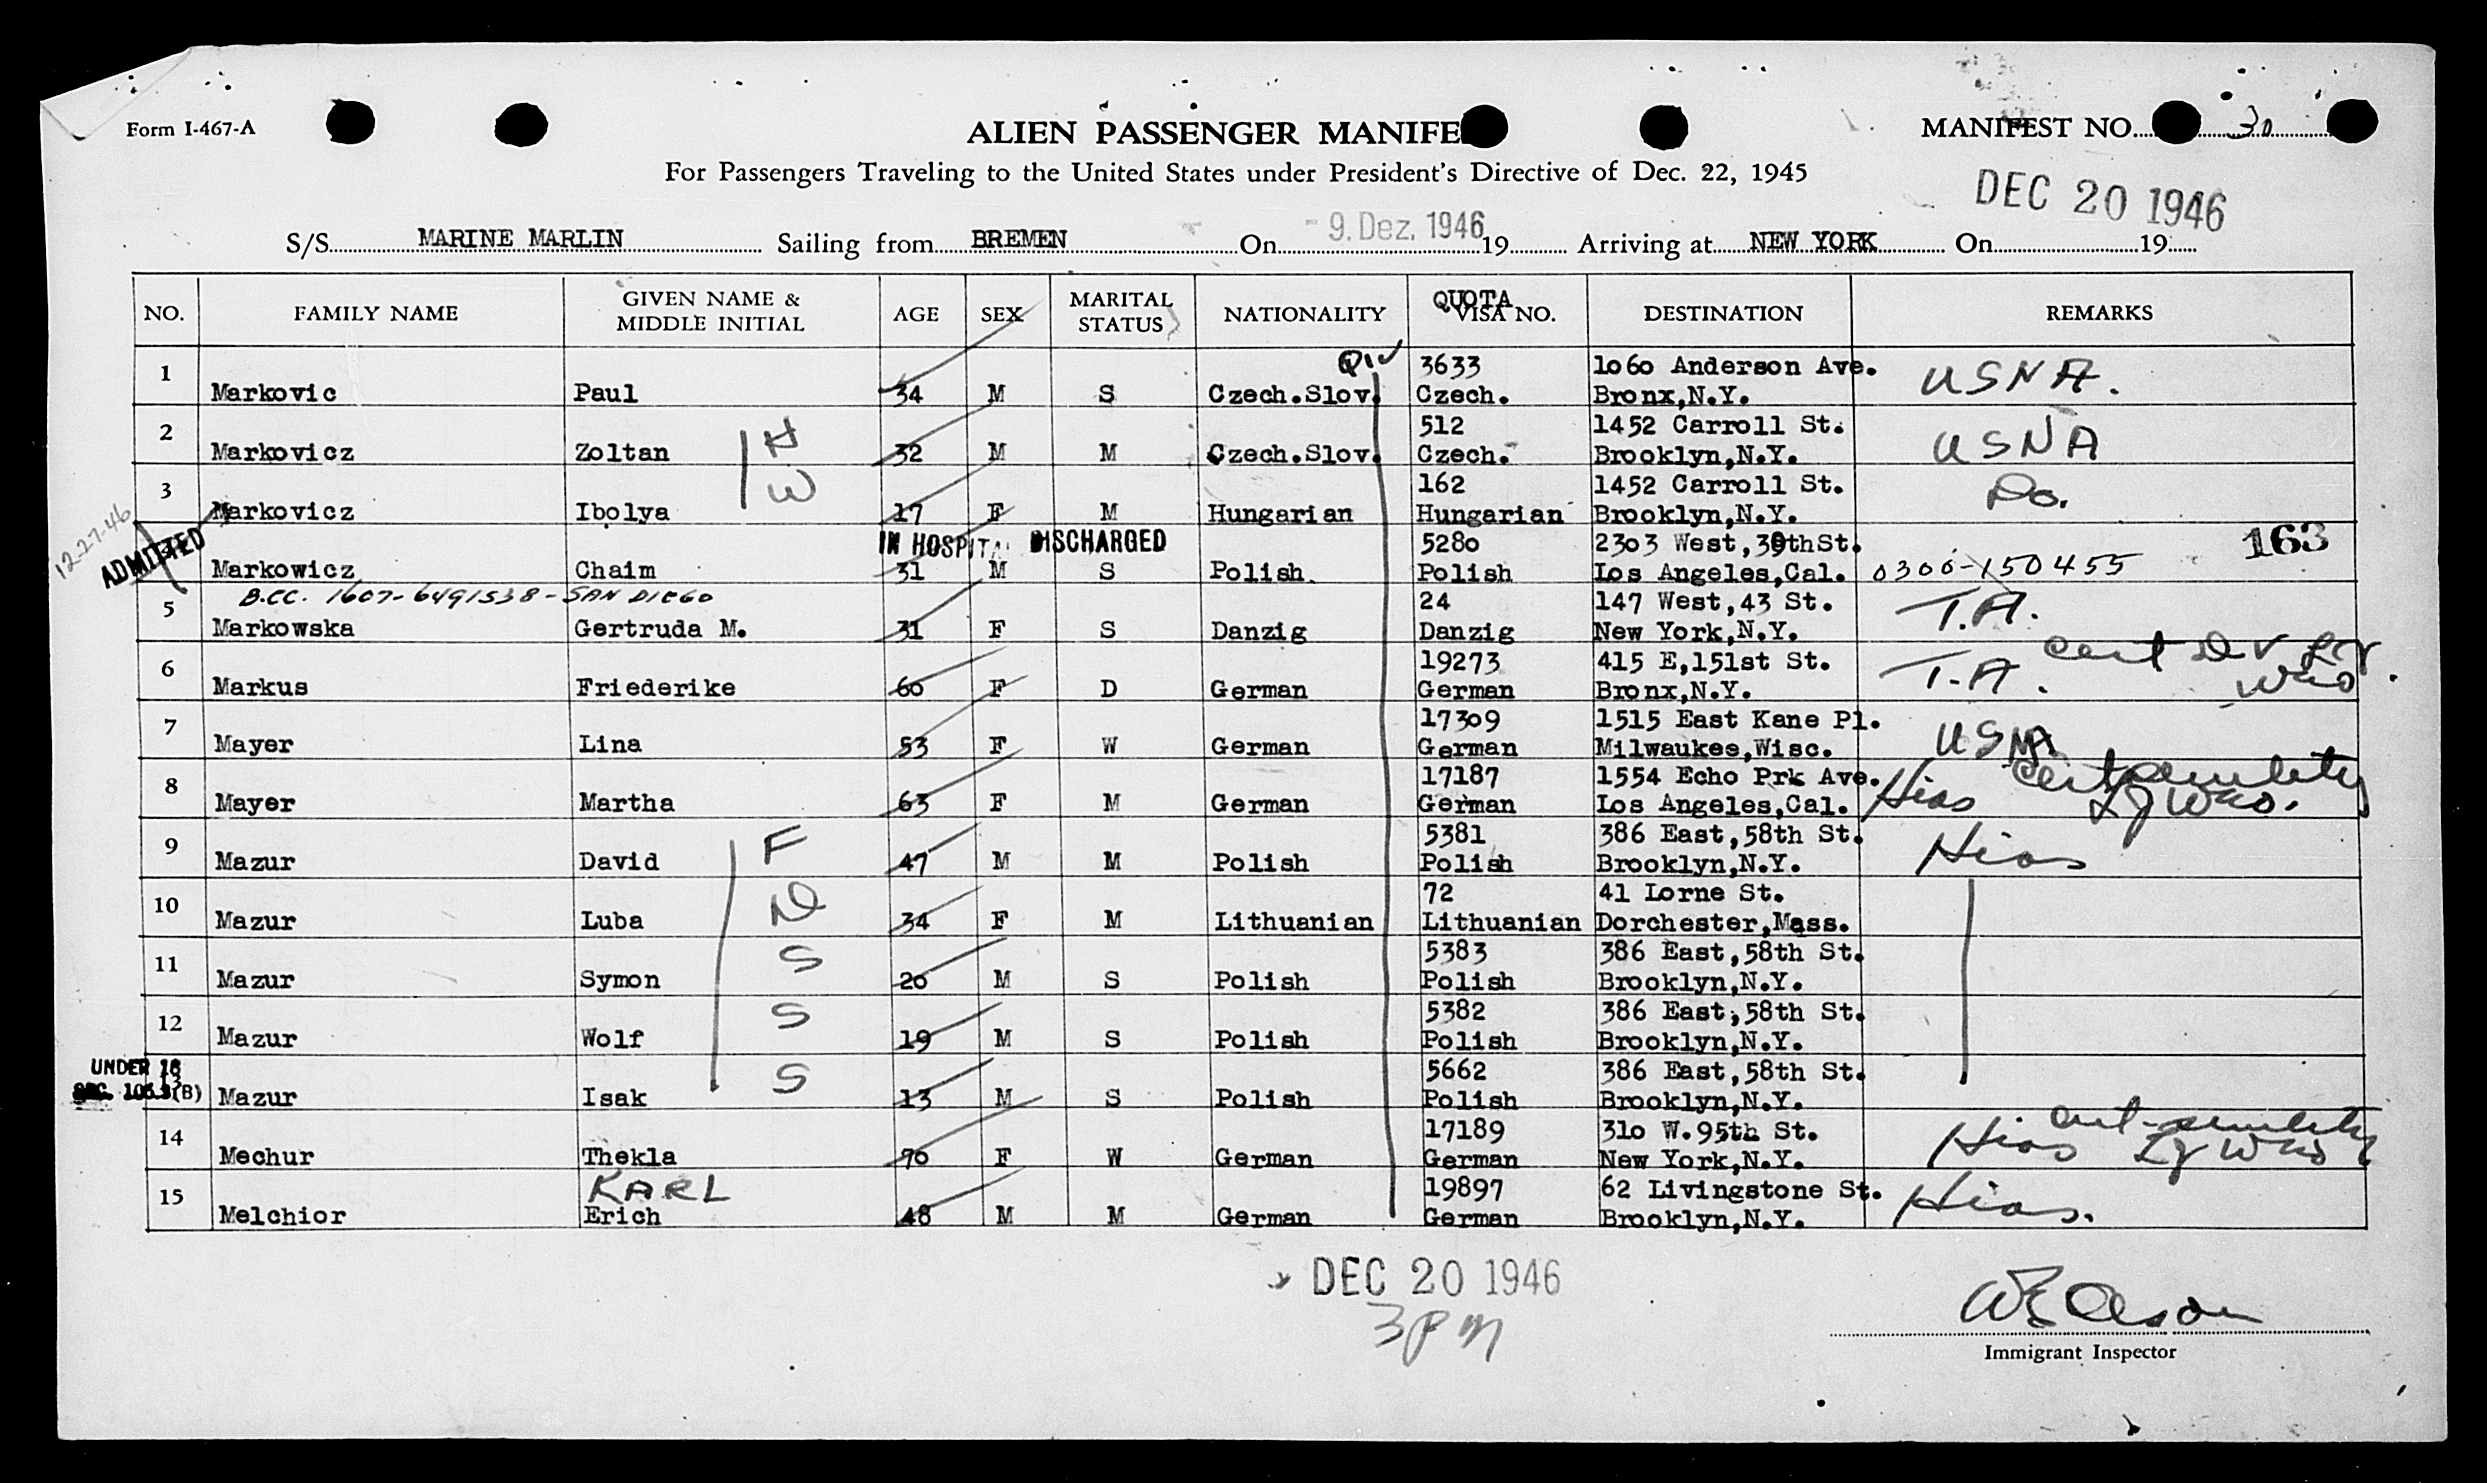 Form I-467-A
ALIEN PASSENGER MANIFE
MANIFEST NO. 30
For Passengers Traveling to the United States under President's Directive of Dec. 22, 1945
DEC 20 1946
S/S MARINE MARLIN Sailing from BREMEN On 9. Dez. 1946 19 Arriving at NEW YORK On 19
NO. FAMILY NAME GIVEN NAME & MIDDLE INITIAL AGE SEX MARITAL STATUS NATIONALITY QUOTA VISA NO. DESTINATION REMARKS
QIV
1 3633 1060 Anderson Ave. USNA.
Markovic Paul 34 M S Czech.Slov. Czech. Bronx,N.Y.
2 H 512 1452 Carroll St. USNA
Markovicz Zoltan 32 M M Czech.Slov. Czech. Brooklyn,N.Y.
3 W 162 1452 Carroll St. Do.
Markovicz Ibolya 17 F M Hungarian Hungarian Brooklyn,N.Y.
12-27-46 ADMITTED IN HOSPITAL DISCHARGED 5280 2303 West,39thSt. 163
Markowicz Chaim 31 M S Polish Polish Los Angeles,Cal. 0300-150455
B.CC. 1607-6491538-SAN DIEGO
5 24 147 West,43 St. T.A.
Markowska Gertruda M. 31 F S Danzig Danzig New York,N.Y.
6 19273 415 E,151st St. T.A. cert
Markus Friederike 60 F D German German Bronx,N.Y.
7 17309 1515 East Kane Pl. USNA
Mayer Lina 53 F W German German Milwaukee,Wisc.
8 17187 1554 Echo Prk Ave. Hias cert senility
Mayer Martha 63 F M German German Los Angeles,Cal.
9 F 5381 386 East,58th St. Hias
Mazur David 47 M M Polish Polish Brooklyn,N.Y.
10 72 41 Lorne St.
Mazur Luba 34 F M Lithuanian Lithuanian Dorchester,Mass.
11 S 5383 386 East,58th St.
Mazur Symon 20 M S Polish Polish Brooklyn,N.Y.
12 S 5382 386 East,58th St.
Mazur Wolf 19 M S Polish Polish Brooklyn,N.Y.
UNDER 16 13 S 5662 386 East,58th St.
SEC. 105.3(B) Mazur Isak 13 M S Polish Polish Brooklyn,N.Y.
14 17189 310 W.95th St. Hias cert-senility
Mechur Thekla 70 F W German German New York,N.Y.
15 KARL 19897 62 Livingstone St. Hias.
Melchior Erich 48 M M German German Brooklyn,N.Y.
DEC 20 1946
3 PM
WE Olson
Immigrant Inspector